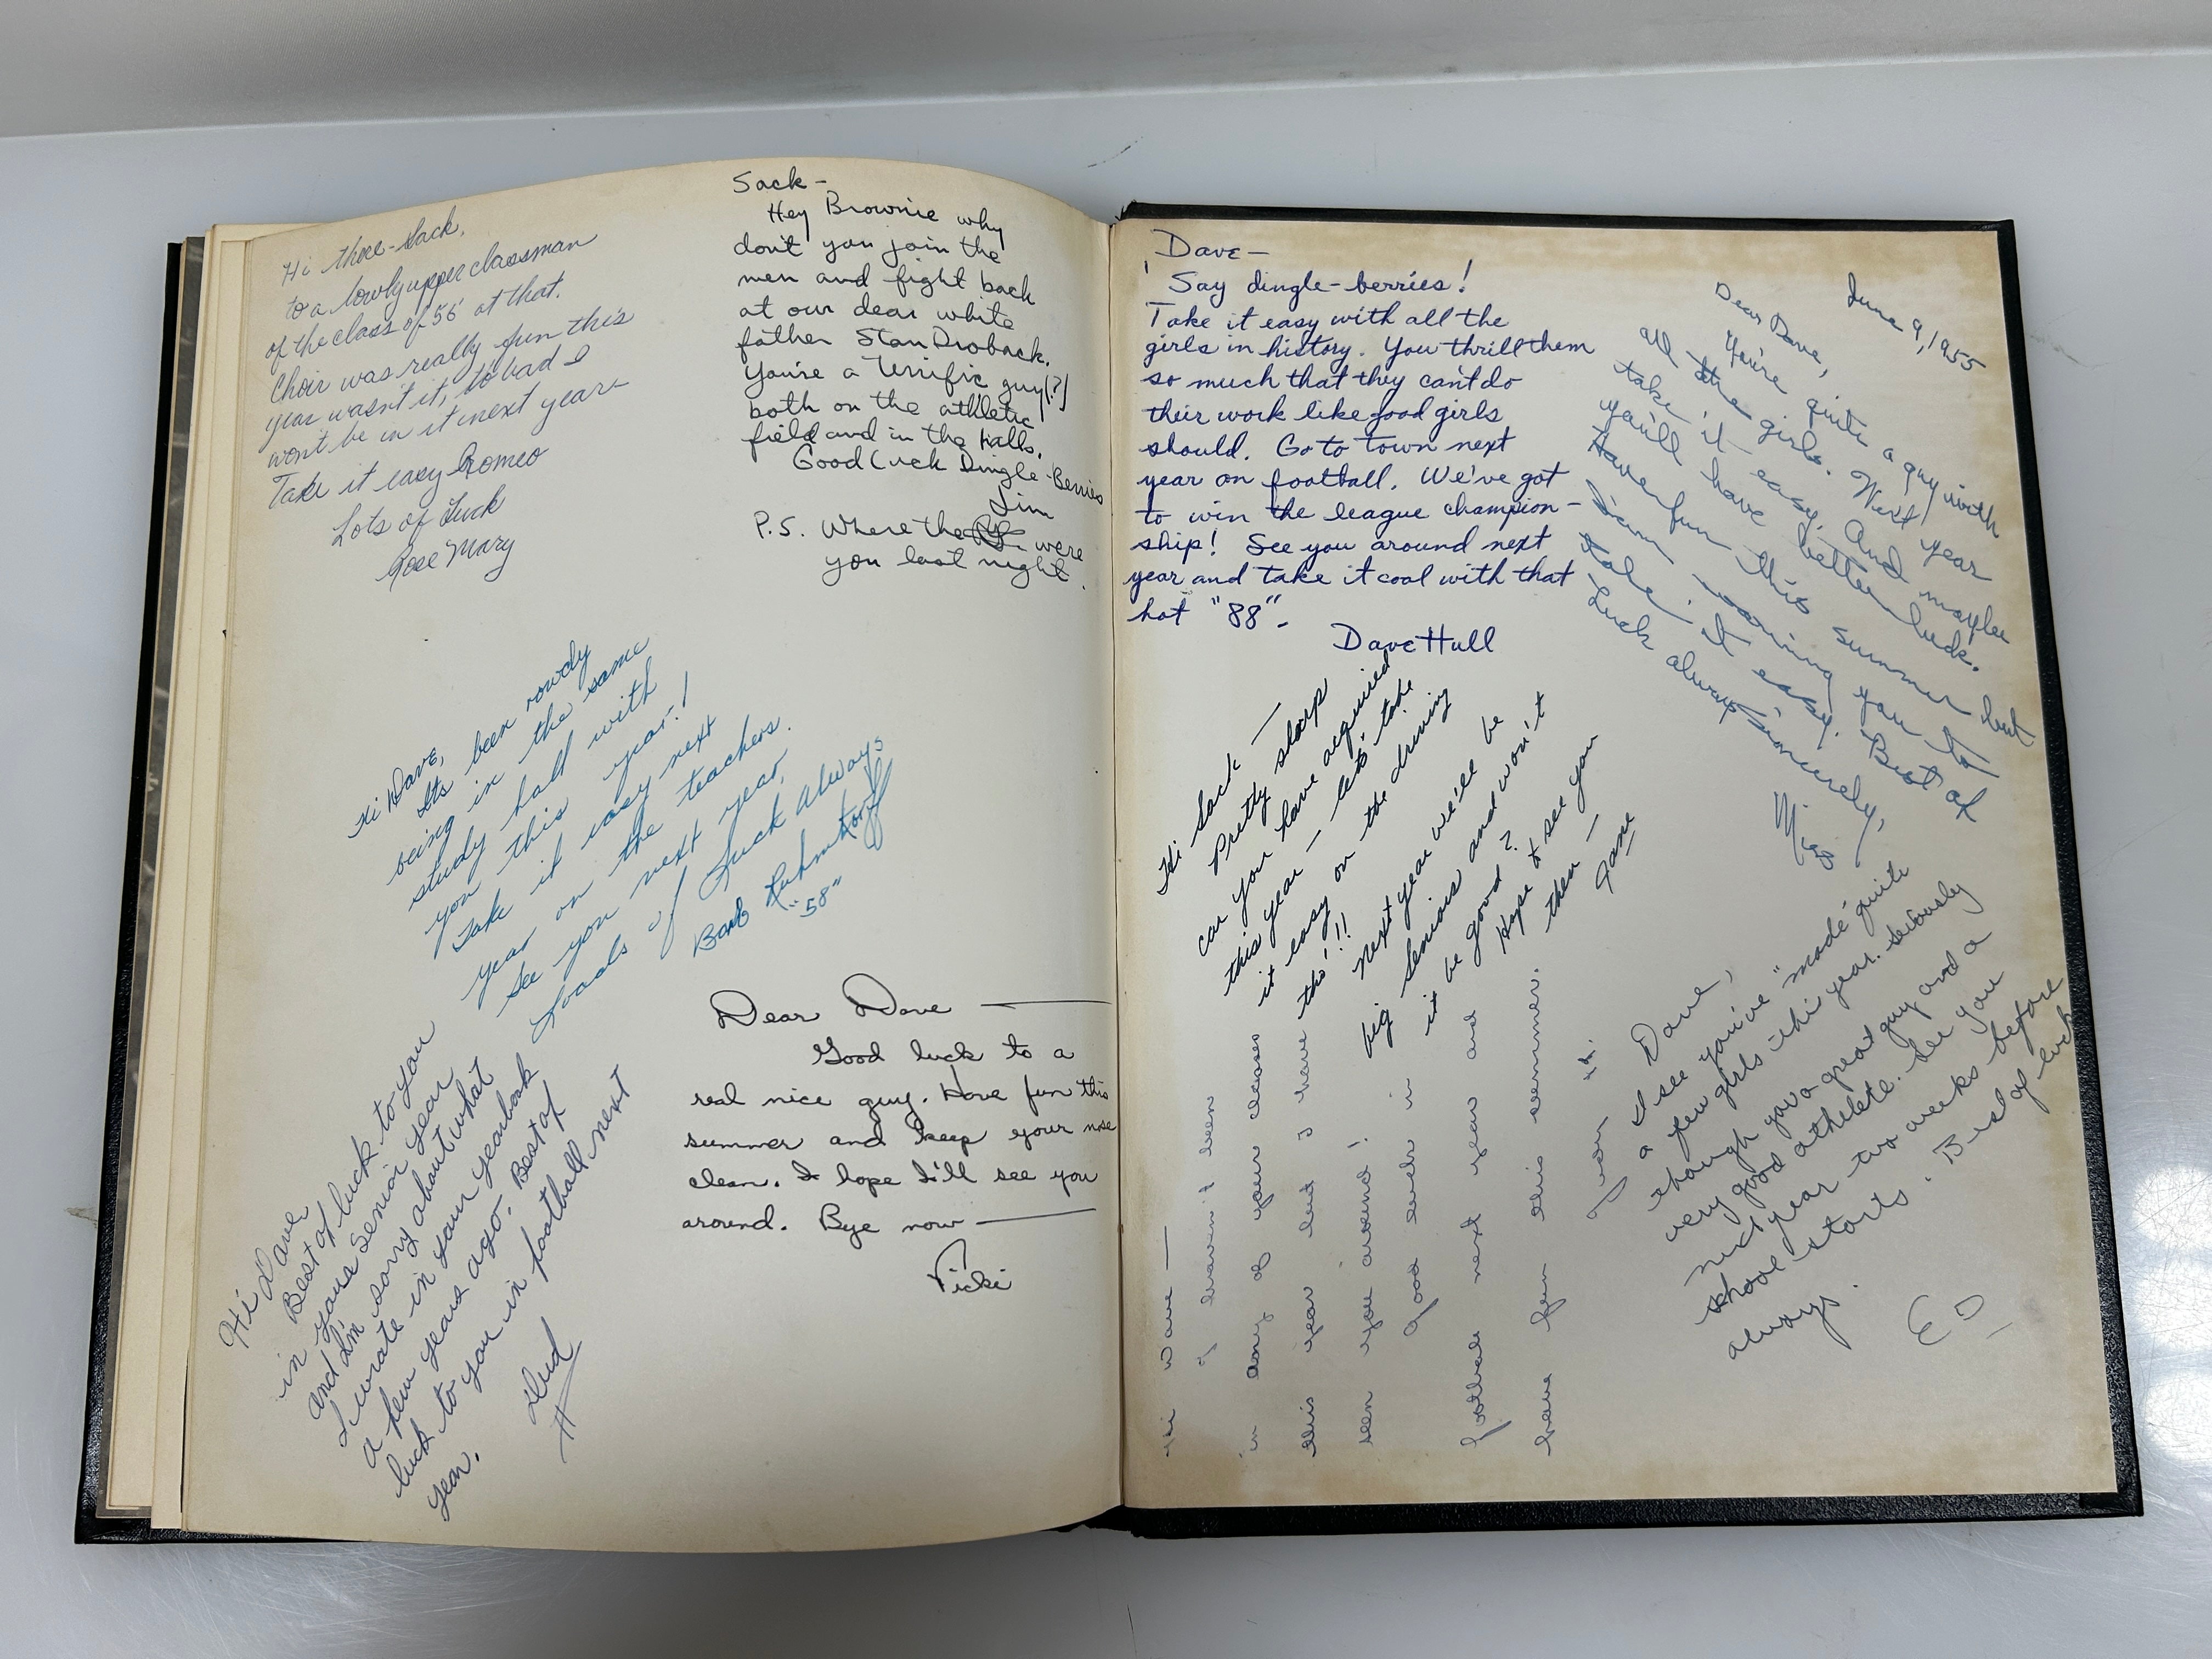 Hi there - Sack,
to a lowly upper classman
of the class of 56 at that.
Choir was really fun this
year wasn't it, to bad I
wont be in it next year
Take it easy Romeo
Lots of Luck
Rose Mary
Sack -
Hey Brownie why
don't you join the
men and fight back
at our dear white
father Stan Droback.
You're a terrific guy(?)
both on the athletic
field and in the halls.
Good Luck Dingle-Berries
Jim
P.S. Where the were
you last night.
Hi Dave,
Its been rowdy
being in the same
study hall with
you this year!
Take it easy next
year on the teachers.
See you next year,
Loads of Luck Always
Barb
"58"
Hi Dave
Best of luck to you
in your Senior year
and I'm sorry about what
I wrote in your yearbook
a few years ago. Best of
luck to you in football next
year.
Dear Dave —
Good luck to a
real nice guy. Have fun this
summer and keep your nose
clean. I hope I'll see you
around. Bye now —
Vicki
Dave -
Say dingle-berries!
Take it easy with all the
girls in history. You thrill them
so much that they can't do
their work like good girls
should. Go to town next
year on football. We've got
to win the league champion-
ship! See you around next
year and take it cool with that
hot "88".
Dave Hull
June 9, 1955
Dear Dave,
You're quite a guy with
all the girls. Next year
take it easy. And maybe
you'll have better luck.
Have fun this summer but
I'm warning you to
take it easy. Best of
Luck always
Sincerely,
Hi Sack —
Pretty sharp
car you have acquired
this year — lets take
it easy on the driving
tho'!!!
Next year we'll be
big seniors and won't
it be good?
Hope to see you
then —
Jane
Hi Dave —
I haven't been
in any of your classes
this year but I have
seen you around!
Good luck in
football next year and
have fun this summer.
Dave,
I see you've "made" quite
a few girls this year. Seriously
though you a great guy and a
very good athelete. See you
next year two weeks before
school starts. Best of luck
always.
ED